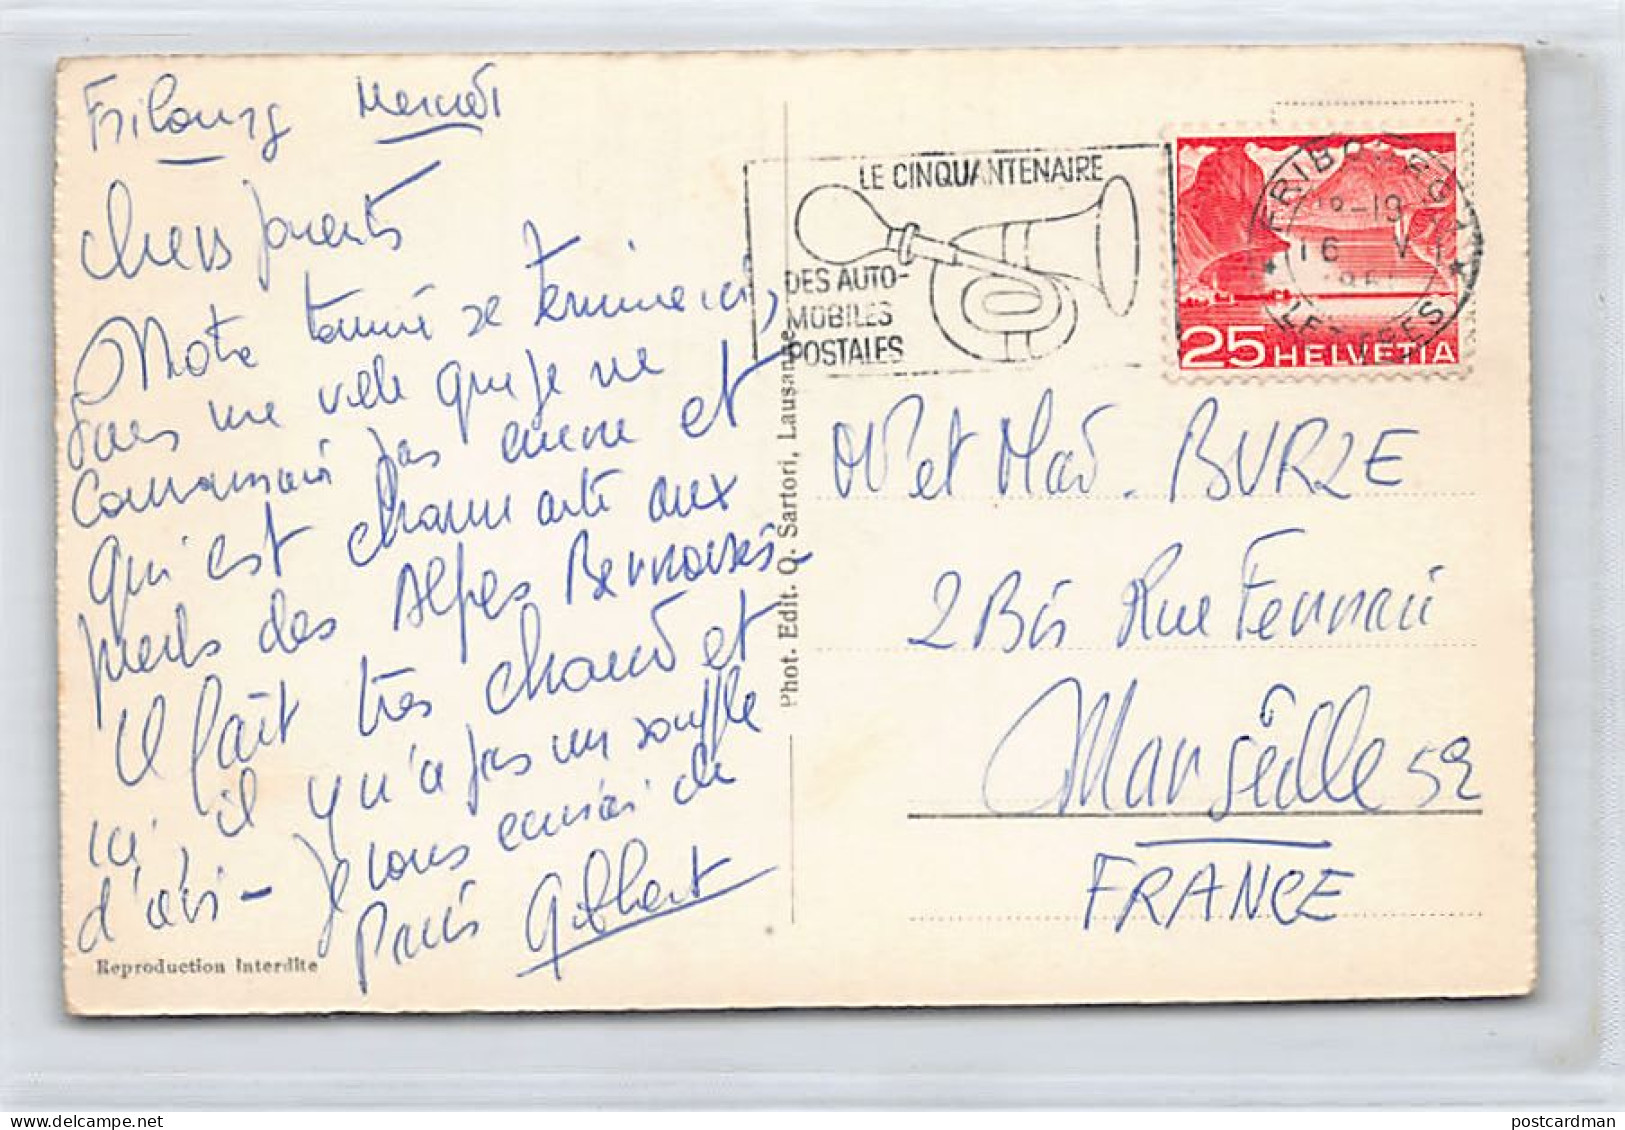 Fribourg Mercredi
Chers parents
Notre tournée se termine ici,
dans une ville que je ne
connaissais pas encore et
qui est charmante aux
pieds des Alpes Bernoises -
Il fait très chaud et
ici, il y n'a pas un souffle
d'air - Je vous écrirai de
Paris Gilbert
Reproduction interdite
Phot. Edit. O. Sartori, Lausanne
LE CINQUANTENAIRE
DES AUTO-
MOBILES
POSTALES
FRIBOURG 1
18-19
16 VI
LETTRES
25 HELVETIA
Mr et Mad. BURZE
2 Bis Rue
Marseille 5e
FRANCE
postcardman